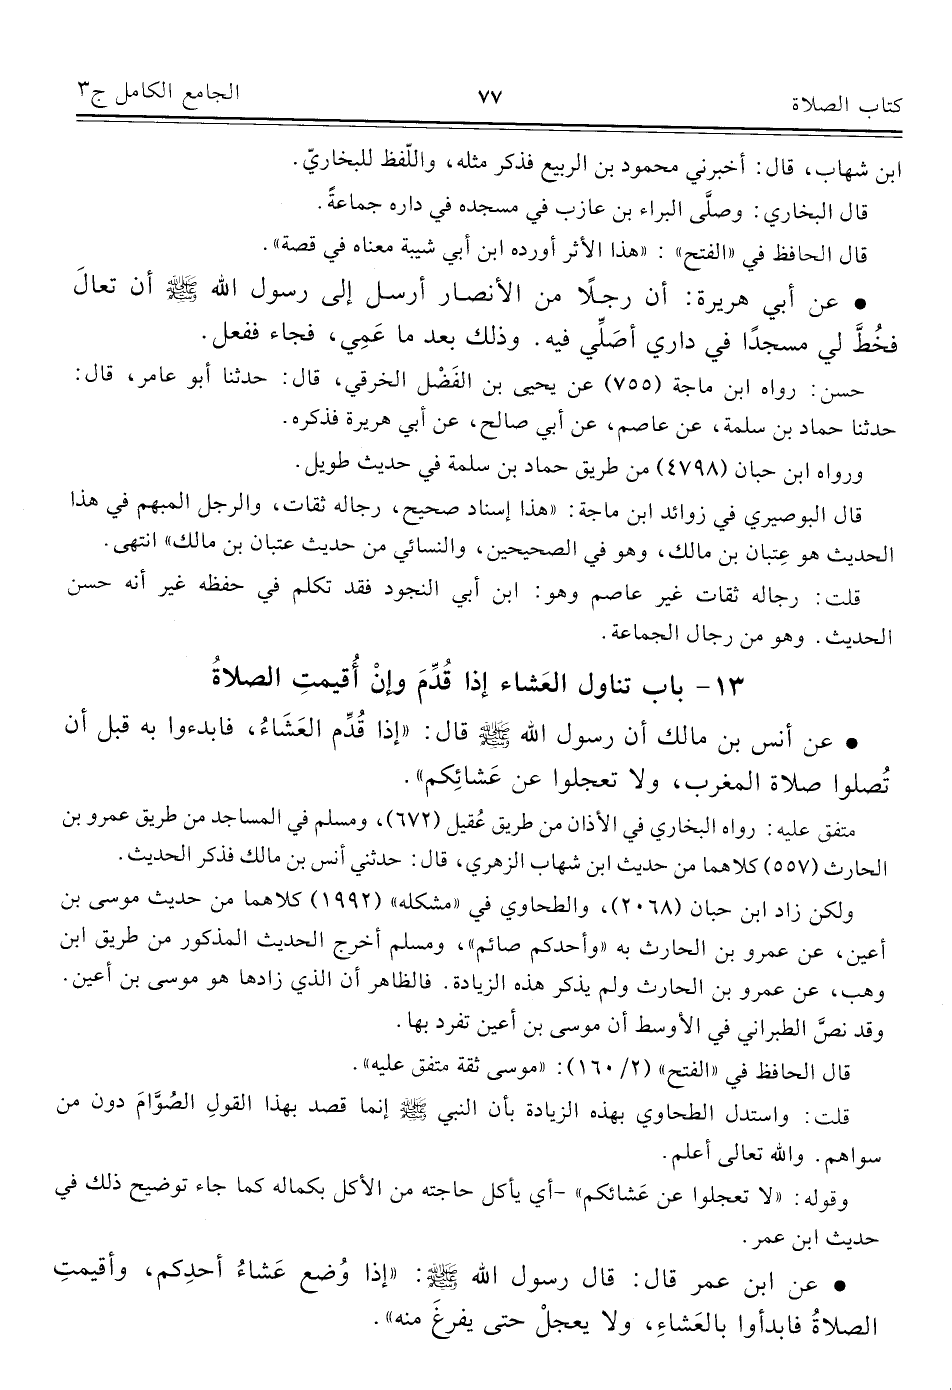 كتاب الصلاة ٧٧ الجامع الكامل ج٣
ابن شهاب، قال: أخبرني محمود بن الربيع فذكر مثله، واللّفظ للبخاريّ.
قال البخاري: وصلَّى البراء بن عازب في مسجده في داره جماعةً.
قال الحافظ في «الفتح» : «هذا الأثر أورده ابن أبي شيبة معناه في قصة».
• عن أبي هريرة: أن رجلًا من الأنصار أرسل إلى رسول الله ﷺ أن تعالَ
فخُطَّ لي مسجدًا في داري أصَلِّي فيه. وذلك بعد ما عَمِي، فجاء ففعل.
حسن: رواه ابن ماجة (٧٥٥) عن يحيى بن الفَضْل الخرقي، قال: حدثنا أبو عامر، قال:
حدثنا حماد بن سلمة، عن عاصم، عن أبي صالح، عن أبي هريرة فذكره.
ورواه ابن حبان (٤٧٩٨) من طريق حماد بن سلمة في حديث طويل.
قال البوصيري في زوائد ابن ماجة: «هذا إسناد صحيح، رجاله ثقات، والرجل المبهم في هذا
الحديث هو عِتبان بن مالك، وهو في الصحيحين، والنسائي من حديث عتبان بن مالك» انتهى.
قلت: رجاله ثقات غير عاصم وهو: ابن أبي النجود فقد تكلم في حفظه غير أنه حسن
الحديث. وهو من رجال الجماعة.
١٣- باب تناول العَشاء إذا قُدِّمَ وإنْ أُقيمتِ الصلاةُ
• عن أنس بن مالك أن رسول الله ﷺ قال: «إذا قُدِّم العَشَاءُ، فابدءوا به قبل أن
تُصلوا صلاة المغرب، ولا تعجلوا عن عَشائِكم».
متفق عليه: رواه البخاري في الأذان من طريق عُقيل (٦٧٢)، ومسلم في المساجد من طريق عمرو بن
الحارث (٥٥٧) كلاهما من حديث ابن شهاب الزهري، قال: حدثني أنس بن مالك فذكر الحديث.
ولكن زاد ابن حبان (٢٠٦٨)، والطحاوي في «مشكله» (١٩٩٢) كلاهما من حديث موسى بن
أعين، عن عمرو بن الحارث به «وأحدكم صائم»، ومسلم أخرج الحديث المذكور من طريق ابن
وهب، عن عمرو بن الحارث ولم يذكر هذه الزيادة. فالظاهر أن الذي زادها هو موسى بن أعين.
وقد نصَّ الطبراني في الأوسط أن موسى بن أعين تفرد بها.
قال الحافظ في «الفتح» (٢/ ١٦٠): «موسى ثقة متفق عليه».
قلت: واستدل الطحاوي بهذه الزيادة بأن النبي ﷺ إنما قصد بهذا القولِ الصُوَّامَ دون من
سواهم. والله تعالى أعلم.
وقوله: «لا تعجلوا عن عَشائكم» -أي يأكل حاجته من الأكل بكماله كما جاء توضيح ذلك في
حديث ابن عمر.
• عن ابن عمر قال: قال رسول الله ﷺ: «إذا وُضع عَشاءُ أحدِكم، وأقيمتِ
الصلاةُ فابدأوا بالعَشاءِ، ولا يعجلْ حتى يفرغَ منه».